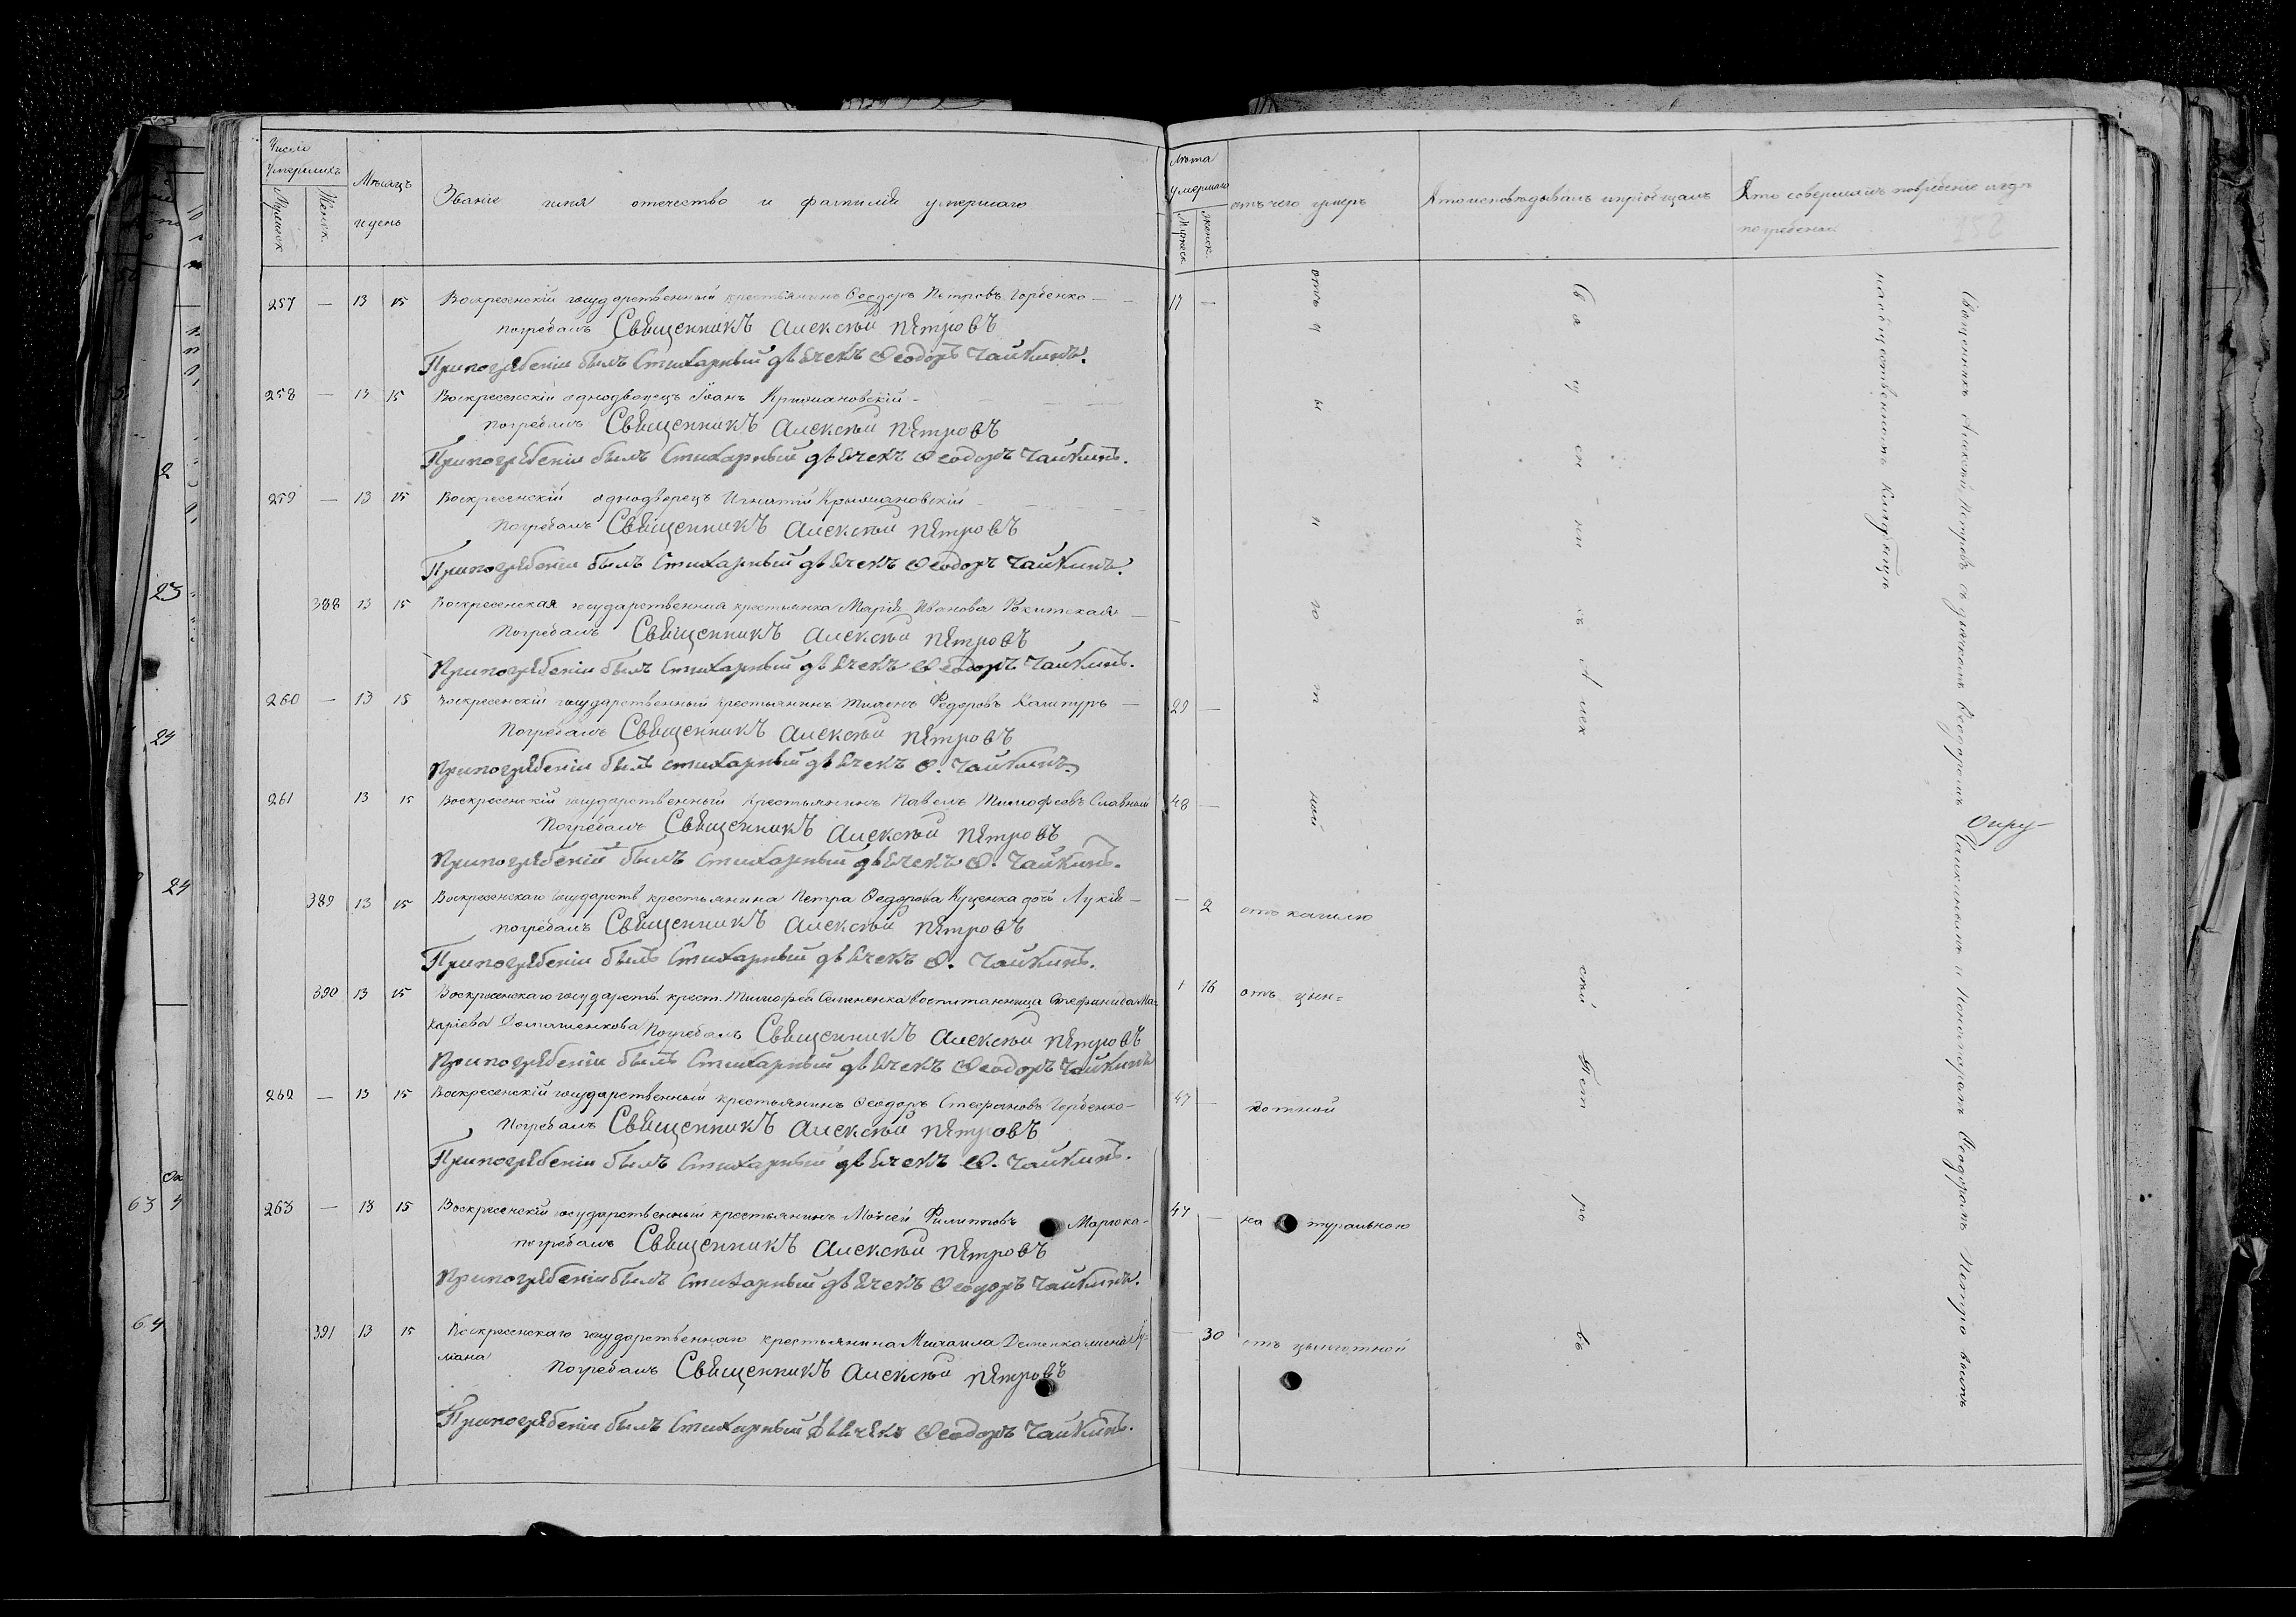 Число умершихъ
Мужеск.
Женск.
Мѣсяцъ и день
Званіе имя отечество и фамилія умершаго
257 — 13 15 Воскресенскій государственный крестьянинъ Ѳеодоръ Петровъ Горбенко —
погребалъ Священникъ Алексѣй Петровъ
При погребеніи былъ Стихарный дьячекъ Ѳеодоръ Чайкинъ.
258 — 13 15 Воскресенскій однодворецъ Іоанъ
погребалъ Священникъ Алексѣй Петровъ
При погребеніи былъ Стихарный дьячекъ Ѳеодоръ Чайкинъ.
259 — 13 15 Воскресенскій однодворецъ Игнатій
Погребалъ Священникъ Алексѣй Петровъ
При погребеніи былъ Стихарный дьячекъ Ѳеодоръ Чайкинъ.
388 13 15 Воскресенская государственная крестьянка Марія Иванова Рокитская —
Погребалъ Священникъ Алексѣй Петровъ
При погребеніи былъ Стихарный дьячекъ Ѳеодоръ Чайкинъ.
260 — 13 15 Воскресенскій государственный крестьянинъ Федоровъ —
Погребалъ Священникъ Алексѣй Петровъ
При погребеніи былъ стихарный дьячекъ Ѳ. Чайкинъ.
261 13 15 Воскресенскій государственный крестьянинъ Павелъ Тимофеевъ Славный
Погребалъ Священникъ Алексѣй Петровъ
При погребеній былъ Стихарный дьячекъ Ѳ. Чайкинъ.
389 13 15 Воскресенскаго государств. крестьянина Петра Ѳедорова Куценка дочь Лукія —
погребалъ Священникъ Алексѣй Петровъ
При погребеніи былъ Стихарный дьячекъ Ѳ. Чайкинъ.
390 13 15 Воскресенскаго государств. крест. Тимофея Семененка воспитанница Стефанида Ма=
каріева Погребалъ Священникъ Алексѣй Петровъ
При погребеніи былъ Стихарный дьячекъ Ѳеодоръ Чайкинъ
262 — 13 15 Воскресенскій государственный крестьянинъ Ѳеодоръ Стефановъ Горбенко —
Погребалъ Священникъ Алексѣй Петровъ
При погребеніи былъ Стихарный дьячекъ Ѳ. Чайкинъ.
263 — 13 15 Воскресенскій государственный крестьянинъ Моѵсей Филипповъ
погребалъ Священникъ Алексѣй Петровъ
При погребеніи былъ Стихарный дьячекъ Ѳеодоръ Чайкинъ.
391 13 15 Воскресенскаго государственнаго крестьянина Михаила жена
Погребалъ Священникъ Алексѣй Петровъ
При погребеніи былъ Стихарный дьячекъ Ѳеодоръ Чайкинъ.
Лѣта умершаго
Мужеск.
женск.
отъ чего умеръ
Кто исповѣдывалъ и пріобщалъ
Кто совершалъ погребеніе и гдѣ
погребены
17 —
29 —
48 —
— 2 отъ кашлю
16 отъ цын=
47 — готной
47 — натуральною
— 30 отъ цынготной
отъ цынготной
Священникъ Алексѣй Петровъ
Священникъ Алексѣй Петровъ съ дьячкомъ Ѳеодоромъ Чайкинымъ и Пономаремъ Ѳеодоромъ
на общественномъ кладбищѣ